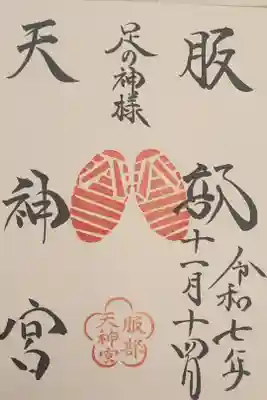 服部
足の神様
天神宮
令和七年
十一月十四日
服部
天神宮